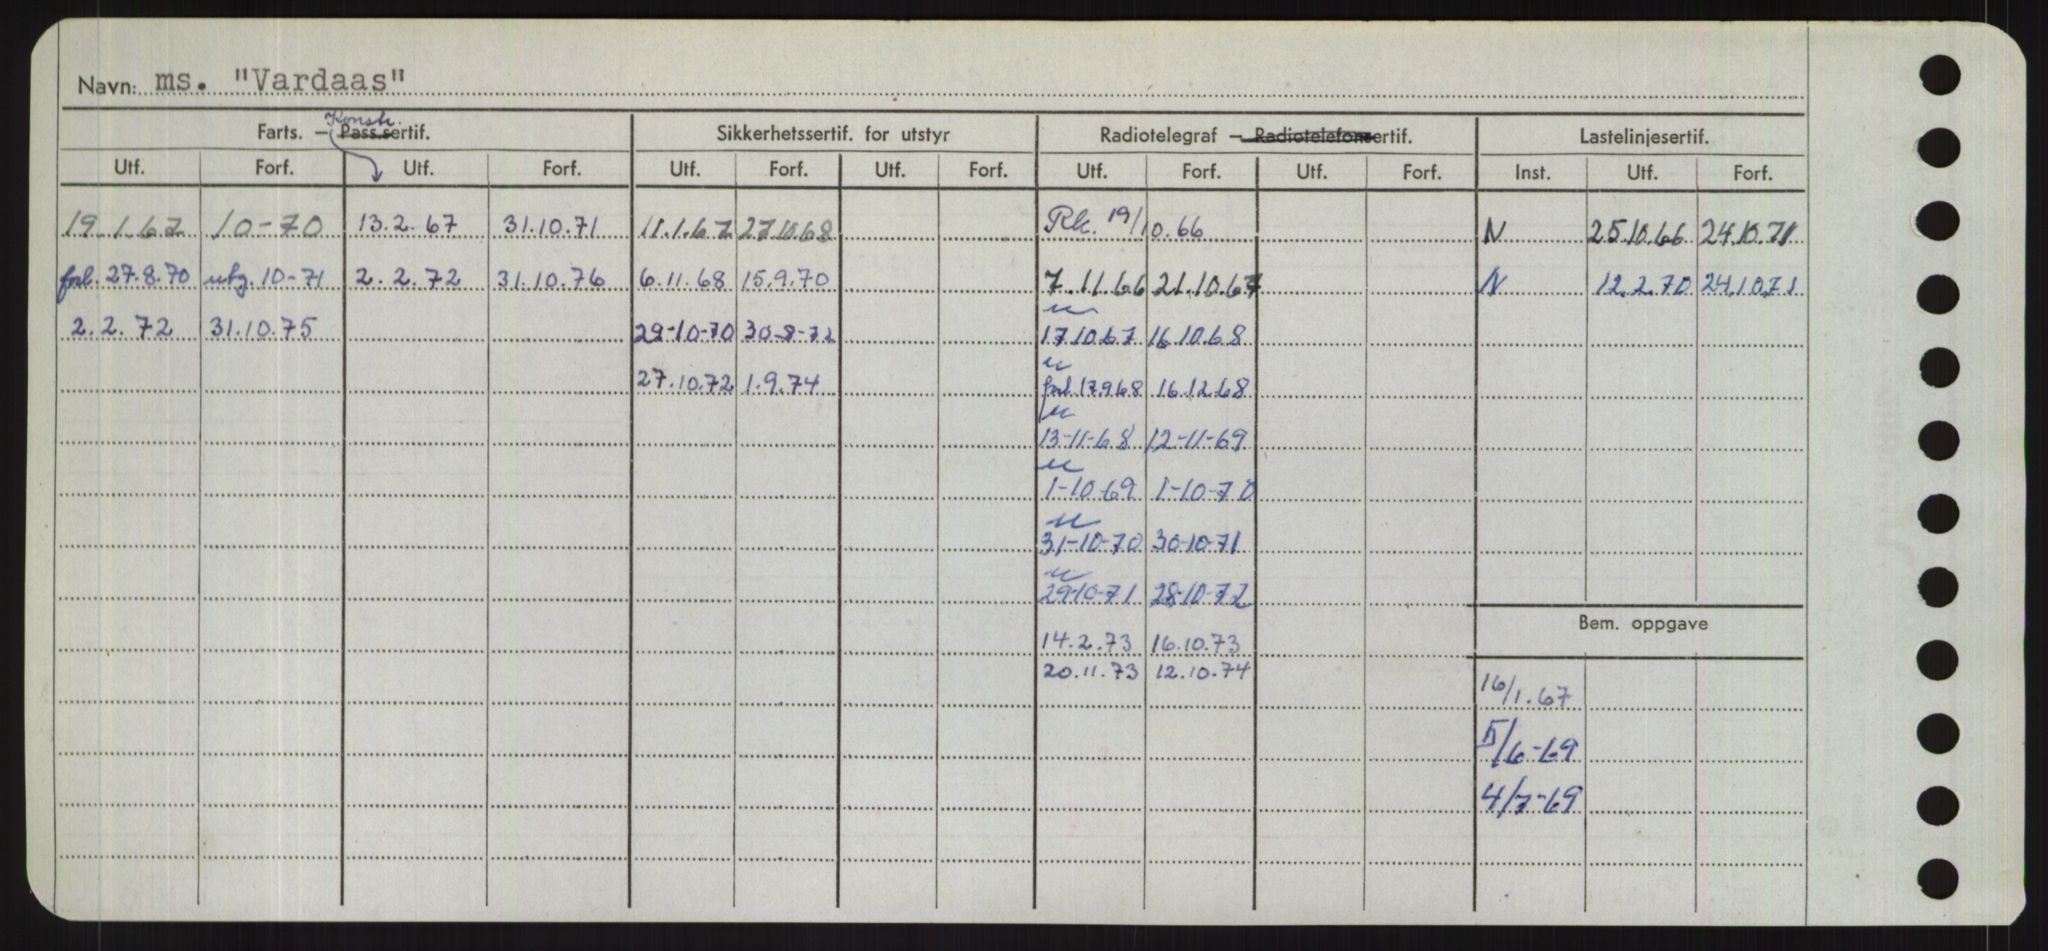 Navn: ms. "Vardaas"
Farts. – Konstr. Pass.sertif. Sikkerhetssertif. for utstyr Radiotelegraf – Radiotelefonsertif. Lastelinjesertif.
Utf. Forf. Utf. Forf. Utf. Forf. Utf. Forf. Utf. Forf. Utf. Forf. Inst. Utf. Forf.
19.1.67 10-70 13.2.67 31.10.71 11.1.67 27.10.68 Rk. 19/10.66 N 25.10.66 24.10.71
forl. 27.8.70 utg. 10-71 2.2.72 31.10.76 6.11.68 15.9.70 7.11.66 21.10.67 N 12.2.70 24.10.71
2.2.72 31.10.75 29-10-70 30-8-72 17.10.67 16.10.68
27.10.72 1.9.74 forl. 17.9.68 16.12.68
13-11-68 12-11-69
1-10-69 1-10-70
31-10-70 30-10-71
29-10-71 28-10-72
Bem. oppgave
14.2.73 16.10.73
20.11.73 12.10.74
16/1.67
5/6-69
4/7-69